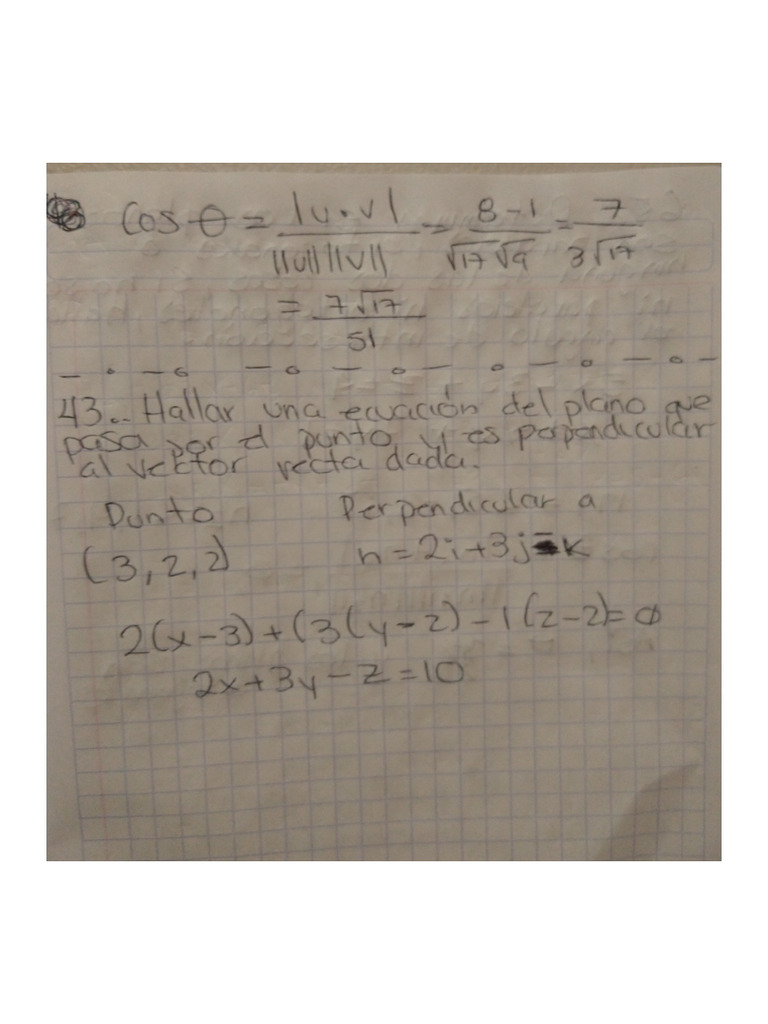 Cos θ = |u·v| / ||u|| ||v|| = 8-1 / √17 √9 = 7 / 3√17
= 7√17 / 51
43.. Hallar una ecuación del plano que
pasa por el punto y es perpendicular
al vector recta dada.
Punto Perpendicular a
(3,2,2) n = 2i+3j-k
2(x-3)+(3(y-2)-1(z-2)=0
2x+3y-z=10